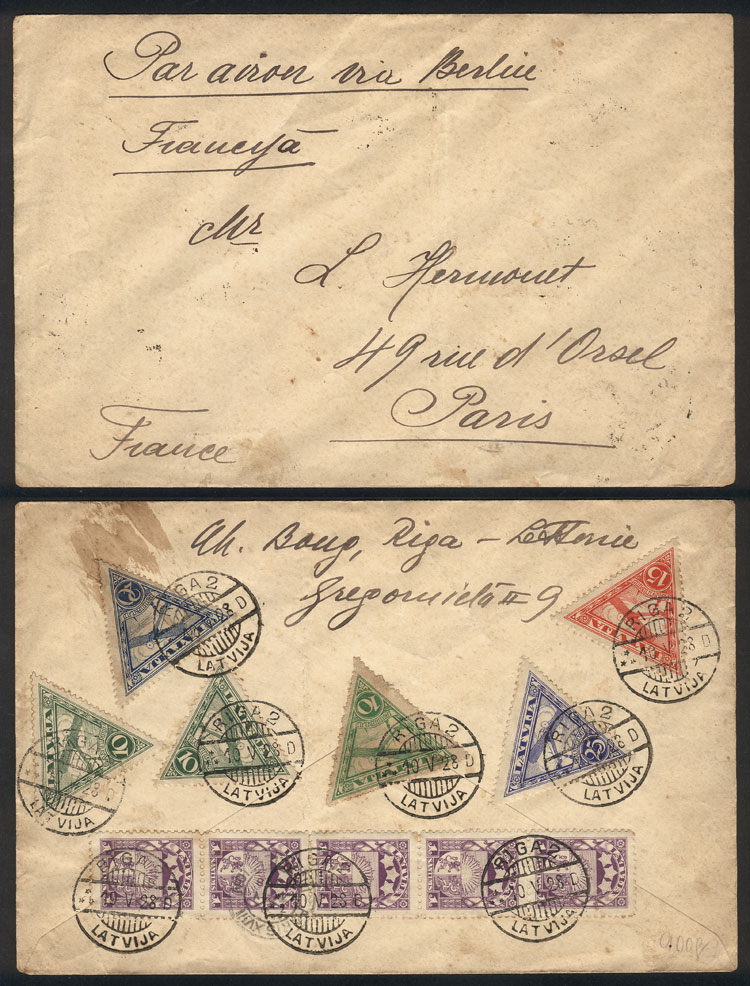 Par avion via Berlin
Francijā
Mr
L. Hermonet
49 rue d'Orsel
Paris
France
Ah. Boug, Riga - Lettonie
9
15
LATVIJA
RIGA 2
28 D
LATVIJA
RIGA 2
28 D
LATVIJA
LATVIJA
10
RIGA
28 D
LATVIJA
10
RIGA 2
10 V 28 D
LATVIJA
10
RIGA 2
10 V 28 D
LATVIJA
LATVIJA
25
RIGA 2
28 D
LATVIJA
RIGA
10 V 28 D
LATVIJA
RIGA 2
10 V 28 C
LATVIJA
RIGA 2
10 V 28 D
LATVIJA